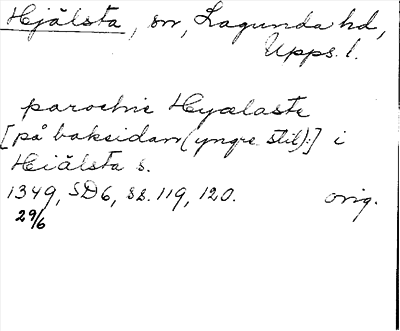 Hjälsta, sn, Lagunda hd,
Upps. l.
parochie Hyælaste
[på baksidan (yngre stil):] i
Hiälsta s.
1349, SD6, ss. 119, 120. orig.
29/6